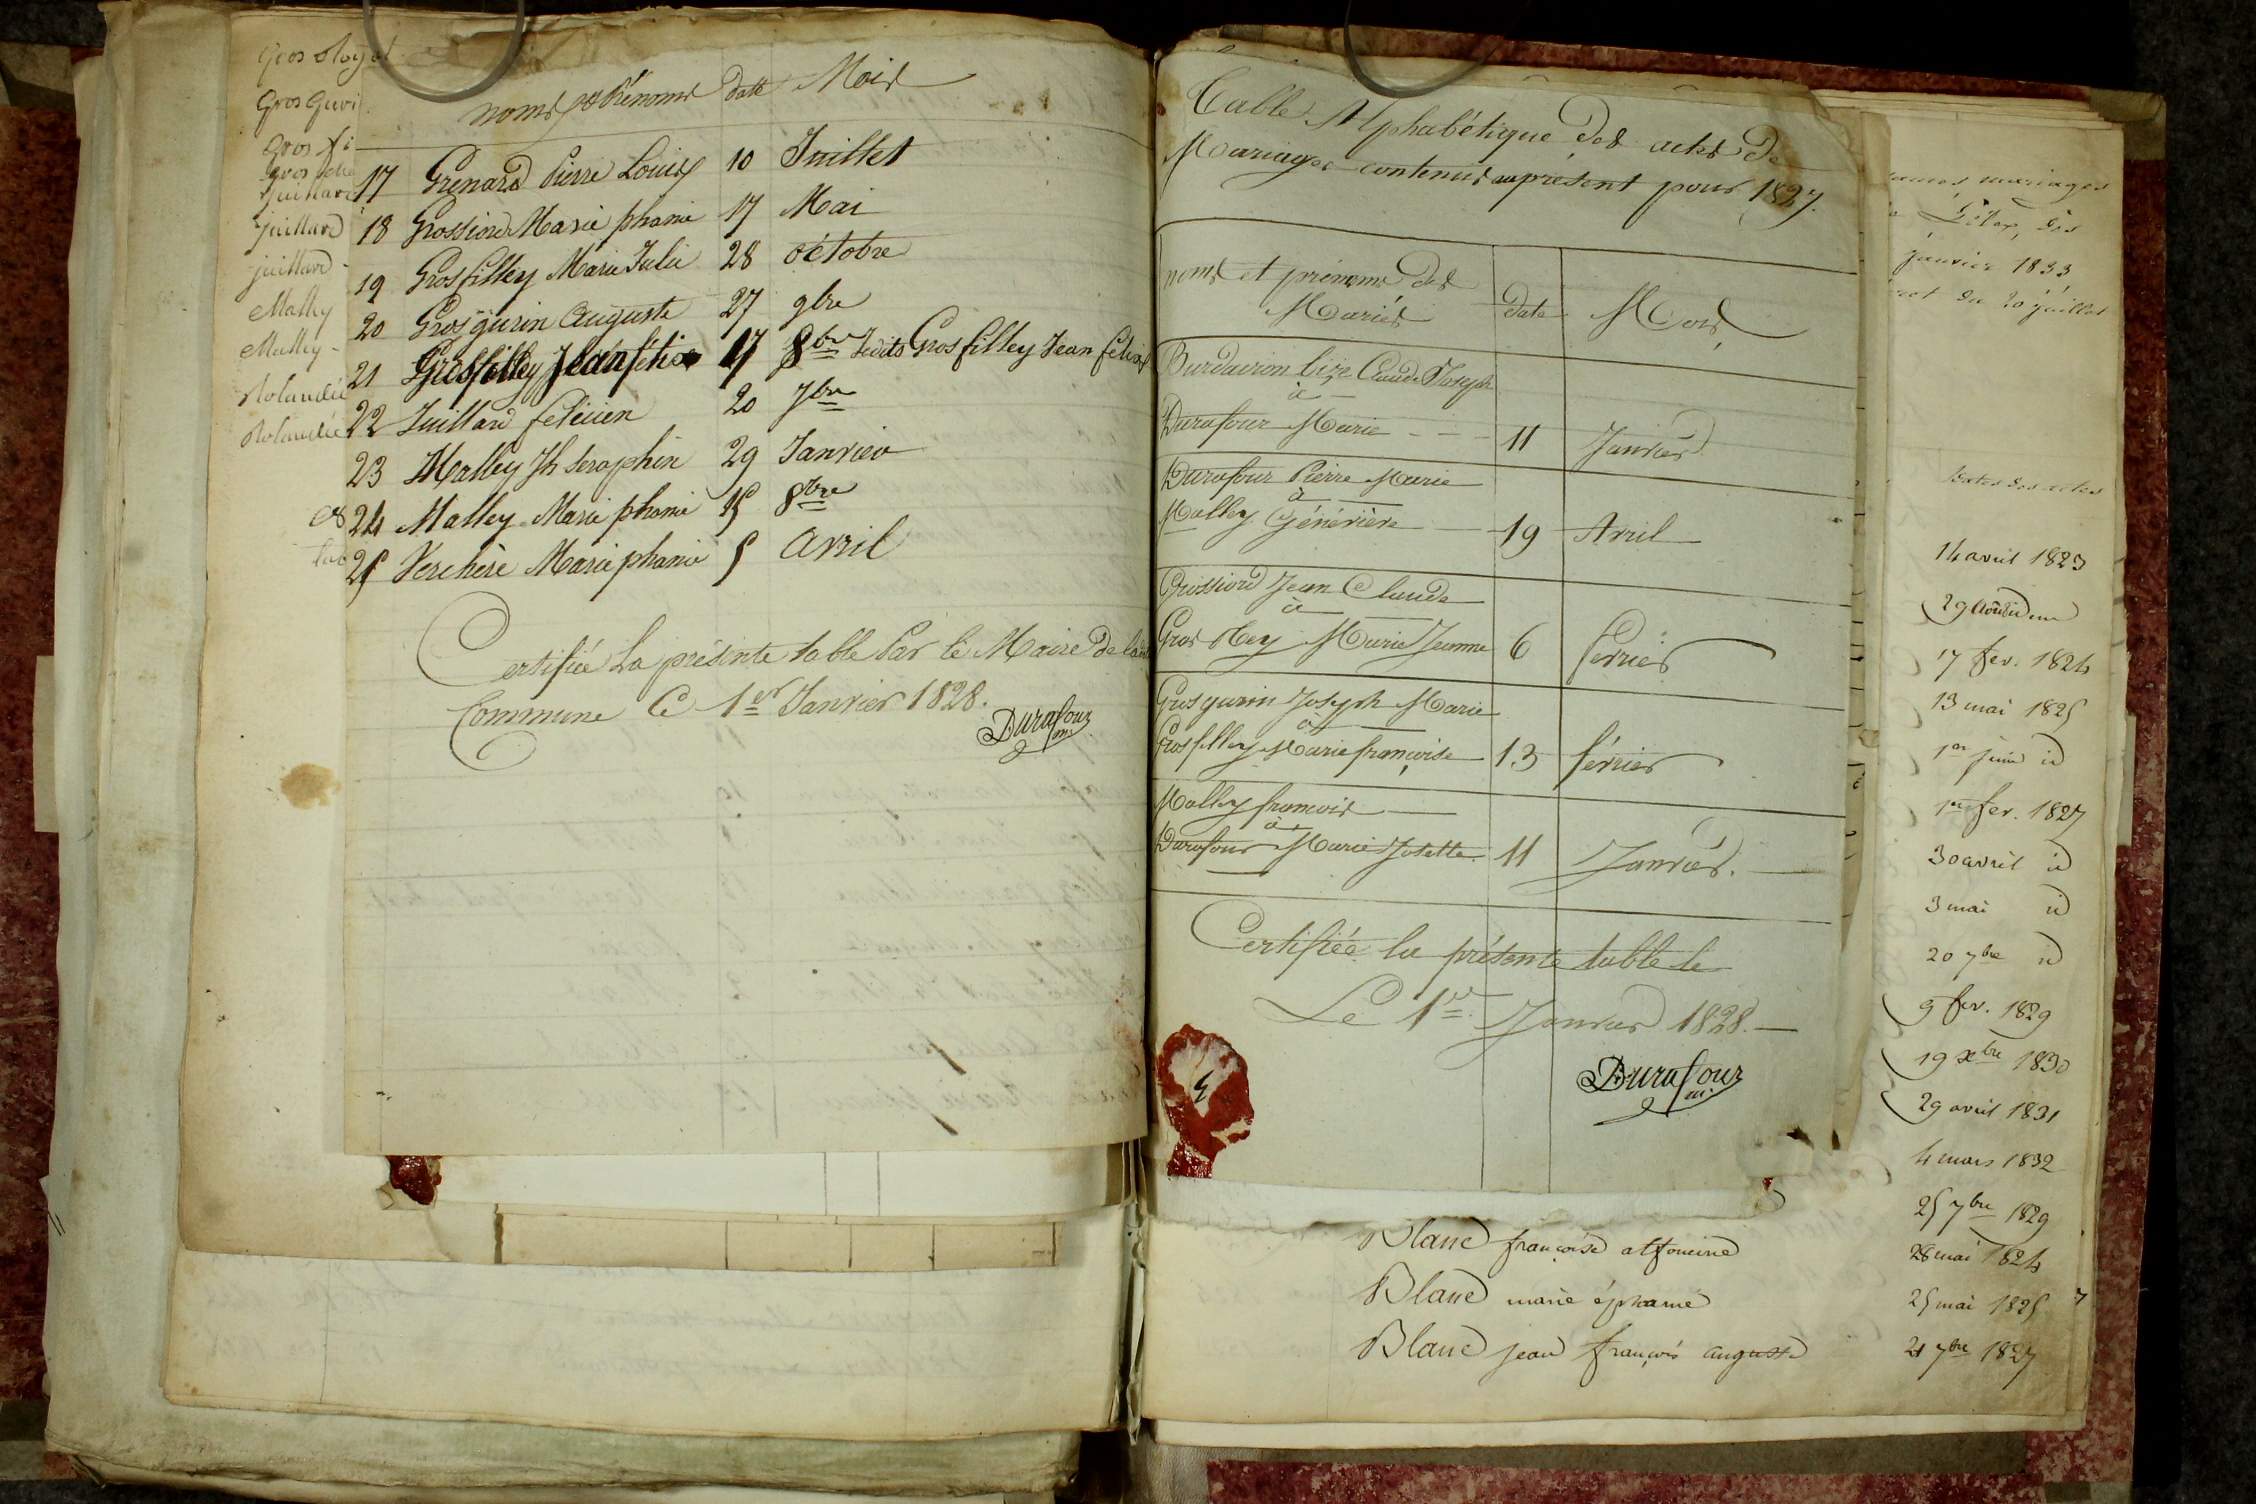 Gros
Gros Guri
Gros fi
Juillard
Juillard
juillard
Malley
Malley
Rolandé
Rolandé
noms et Prénoms date Mois
17 Grenard Pierre Louis 10 Juillet
18 Grossiord Marie phanie 17 Mai
19 Grosfilley Marie Julie 28 octobre
20 Grosgurin Auguste 27 9bre
21 Grosfilley Jean félix 17 8bre Ledit Grosfilley Jean félix
22 Juillard felicien 20 7bre
23 Malley Jh Seraphin 29 Janvier
24 Malley Marie phanie 15 8bre
25 Verchère Marie phanie 5 Avril
Certifiée La présente table Par le Maire de la
Commune Ce 1er Janvier 1828.
Durafour
m.
Table Alphabétique des actes de
Mariages contenus au présent pour 1827.
noms et prénoms des
Mariés date Mois
Burdairon Claude Joseph
à
Durafour Marie - - - 11 Janvier
Durafour Pierre Marie
à
Malley Génévière 19 Avril
Grossiord Jean Claude
à
Gros Rey Marie Jeanne 6 fevrier
Grosgurin Joseph Marie
à
Grosfilley Marie françoise 13 février
Malley françois
à
Durafour Marie Josette 11 Janvier.
Certifiée la présente table le
Le 1er Janvier 1828.
Durafour
m.
mariages
janvier 1833
du 20 juillet
dates des actes
14 avril 1823
29 Août
17 fev. 1824
13 mai 1825
1er juin id
1er fev. 1827
30 avril id
3 mai id
20 7bre id
9 fev. 1829
19 xbre 1830
29 avril 1831
4 mars 1832
25 7bre 1829
Blanc françoise alfonsine 28 mai 1824
Blanc marie éphanie 25 mai 1825
Blanc jean françois auguste 21 7bre 1827